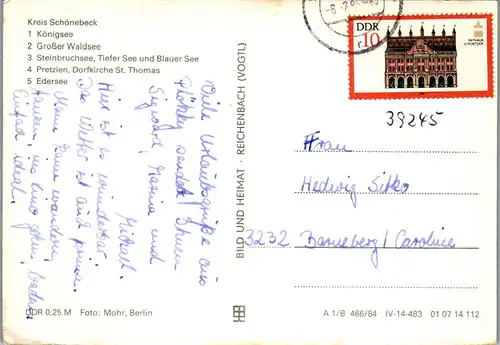 Kreis Schönebeck
1 Königsee
2 Großer Waldsee
3 Steinbruchsee, Tiefer See und Blauer See
4 Pretzien, Dorfkirche St. Thomas
5 Edersee
Viele Urlaubsgrüße aus
Plötzky sendet Ihnen
Sigward, und
Hier ist es wunderbar.
Das Wetter ist auch prima.
Man kann wandern,
ins Kino gehen, baden.
Einfach ideal.
DDR 0,25 M Foto: Mohr, Berlin
BILD UND HEIMAT · REICHENBACH (VOGTL)
DDR
10
RATHAUS
IN ROSTOCK
39245
Frau
Hedwig Sitko
3232 Barneberg/
A 1/B 466/84 IV-14-483 01 07 14 112